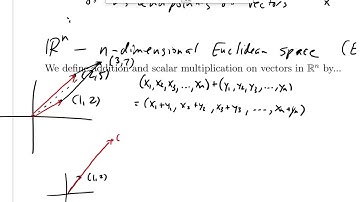 ℝⁿ - n-dimensional Euclidean space (E
We define addition and scalar multiplication on vectors in ℝⁿ by...
(3,7)
(2,5)
(1,2)
(x₁, x₂, x₃, ..., xₙ) + (y₁, y₂, y₃, ..., yₙ)
= (x₁+y₁, x₂+y₂, x₃+y₃, ..., xₙ+yₙ)
(
(1,2)